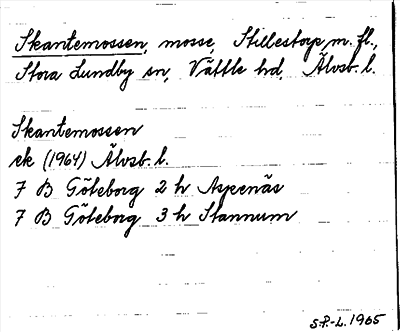 Skantemossen, mosse, Stillestorp m. fl.,
Stora Lundby sn, Vättle hd, Älvsb. l.
Skantemossen
ek (1964) Älvsb. l.
7 B Göteborg 2 h Aspenäs
7 B Göteborg 3 h Stannum
S.P.-L. 1965